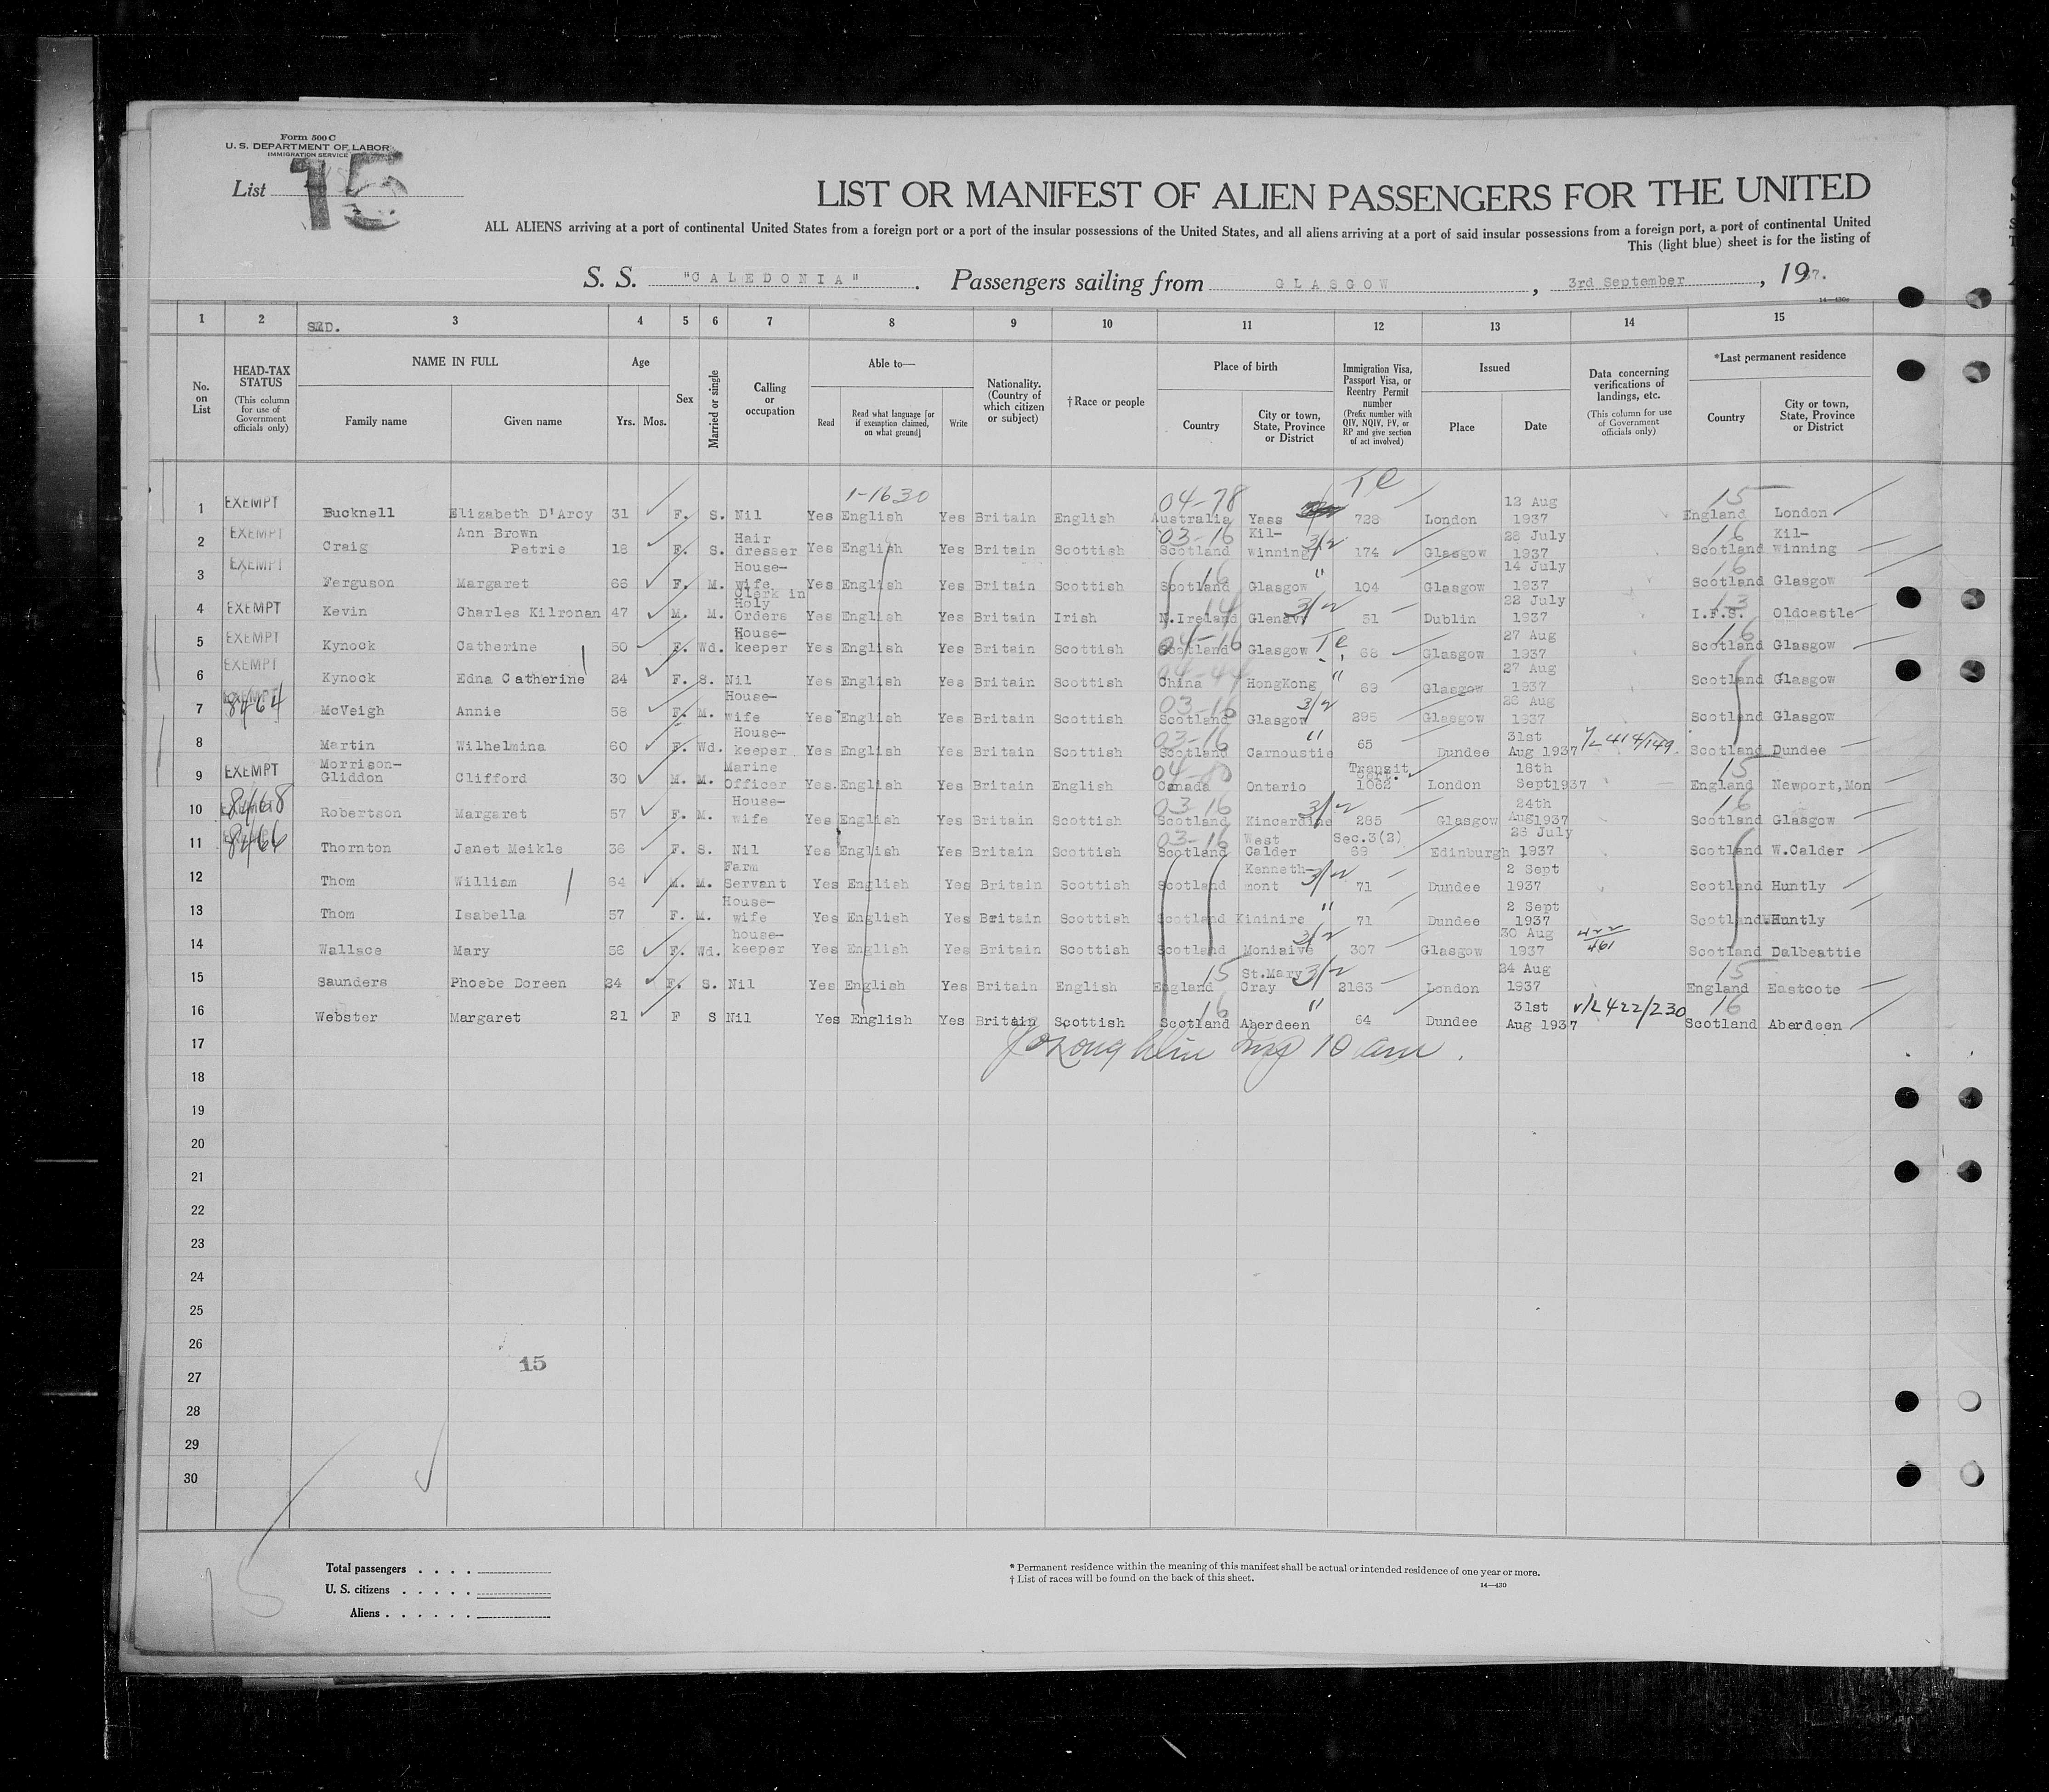 Form 500 C
U. S. DEPARTMENT OF LABOR
IMMIGRATION SERVICE
List 15
LIST OR MANIFEST OF ALIEN PASSENGERS FOR THE UNITED
ALL ALIENS arriving at a port of continental United States from a foreign port or a port of the insular possessions of the United States, and all aliens arriving at a port of said insular possessions from a foreign port, a port of continental United
This (light blue) sheet is for the listing of
S. S. "CALEDONIA". Passengers sailing from GLASGOW, 3rd September, 1937.
14—430c
1 2 3 4 5 6 7 8 9 10 11 12 13 14 15
No. on List
HEAD-TAX STATUS (This column for use of Government officials only)
NAME IN FULL Family name Given name
Age Yrs. Mos.
Sex
Married or single
Calling or occupation
Able to— Read Read what language [or if exemption claimed, on what ground] Write
Nationality. (Country of which citizen or subject)
† Race or people
Place of birth Country City or town, State, Province or District
Immigration Visa, Passport Visa, or Reentry Permit number (Prefix number with QIV, NQIV, PV, or RP and give section of act involved)
Issued Place Date
Data concerning verifications of landings, etc. (This column for use of Government officials only)
*Last permanent residence Country City or town, State, Province or District
1-1630 04-78 15
1 EXEMPT Bucknell Elizabeth D'Arcy 31 F. S. Nil Yes English Yes Britain English Australia Yass 728 London 12 Aug 1937 England London
2 EXEMPT Craig Ann Brown Petrie 18 F. S. Hair dresser Yes English Yes Britain Scottish 03-16 Scotland Kil-winning 3/2 174 Glasgow 28 July 1937 16 Scotland Kil-winning
3 EXEMPT Ferguson Margaret 66 F. M. House-wife Yes English Yes Britain Scottish 16 Scotland Glasgow " 104 Glasgow 14 July 1937 16 Scotland Glasgow
4 EXEMPT Kevin Charles Kilronan 47 M. M. Clerk in Holy Orders Yes English Yes Britain Irish 14 N.Ireland Glenavy 3/2 51 Dublin 22 July 1937 13 I.F.S. Oldcastle
5 EXEMPT Kynock Catherine 50 F. Wd. House-keeper Yes English Yes Britain Scottish 04-16 Scotland Glasgow 68 Glasgow 27 Aug 1937 16 Scotland Glasgow
6 EXEMPT Kynock Edna Catherine 24 F. S. Nil Yes English Yes Britain Scottish 04-44 China HongKong " 69 Glasgow 27 Aug 1937 Scotland Glasgow
7 8464 McVeigh Annie 58 F. M. House-wife Yes English Yes Britain Scottish 03-16 Scotland Glasgow 3/2 295 Glasgow 28 Aug 1937 Scotland Glasgow
8 Martin Wilhelmina 60 F. Wd. House-keeper Yes English Yes Britain Scottish 03-16 Scotland Carnoustie " 65 Dundee 31st Aug 1937 414/149 Scotland Dundee
9 EXEMPT Morrison-Gliddon Clifford 30 M. M. Marine Officer Yes. English Yes Britain English Canada Ontario Transit Cert. 1062 London 18th Sept1937 15 England Newport,Mon
10 8468 Robertson Margaret 57 F. M. House-wife Yes English Yes Britain Scottish 03 16 Scotland Kincardine 3/2 285 Glasgow 24th Aug1937 16 Scotland Glasgow
11 8466 Thornton Janet Meikle 36 F. S. Nil Yes English Yes Britain Scottish 03-16 Scotland West Calder Sec.3(2) 69 Edinburgh 28 July 1937 Scotland W.Calder
12 Thom William 64 M. M. Farm Servant Yes English Yes Britain Scottish Scotland Kenneth-mont 3/2 71 Dundee 2 Sept 1937 Scotland Huntly
13 Thom Isabella 57 F. M. House-wife Yes English Yes Britain Scottish Scotland Kininire " 71 Dundee 2 Sept 1937 Scotland Huntly
14 Wallace Mary 56 F. Wd. house-keeper Yes English Yes Britain Scottish Scotland Moniaive 3/2 307 Glasgow 30 Aug 1937 422/461 Scotland Dalbeattie
15 Saunders Phoebe Doreen 24 F. S. Nil Yes English Yes Britain English 15 England St.Mary Cray 3/2 2163 London 24 Aug 1937 15 England Eastcote
16 Webster Margaret 21 F S Nil Yes English Yes Britain Scottish 16 Scotland Aberdeen " 64 Dundee 31st Aug 1937 v/L 422/230 16 Scotland Aberdeen
17
18
19
20
21
22
23
24
25
26
15
27
28
29
30
Total passengers . . . .
U. S. citizens . . . . .
Aliens . . . . . .
* Permanent residence within the meaning of this manifest shall be actual or intended residence of one year or more.
† List of races will be found on the back of this sheet.
14—430
15